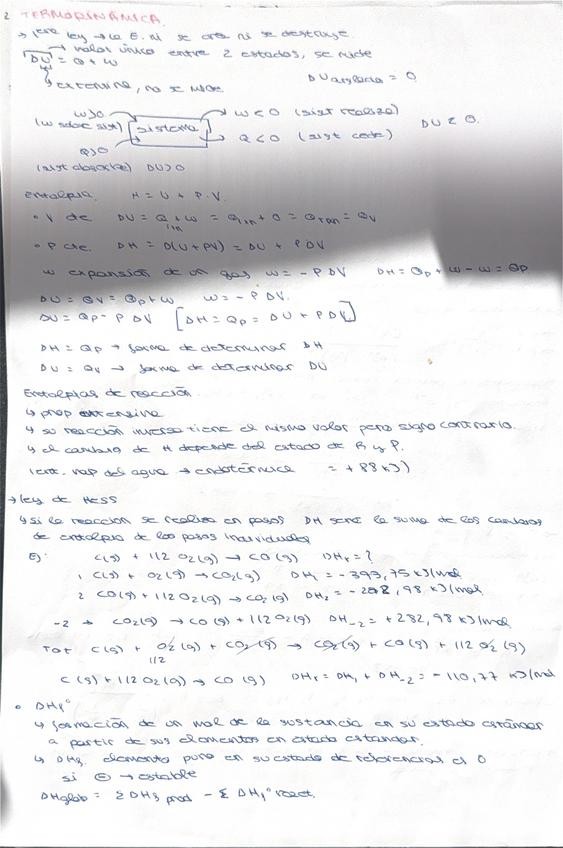 2 TERMODINÁMICA.
→ 1ere ley → la E. ni se crea ni se destruye.
→ valor único entre 2 estados, se mide
DU = Q + W
↳ extensine, no se mide DU aislado = 0
W>0 W < 0 (sist realiza)
(W sobre sist) sistema DU < 0.
Q>0 Q < 0 (sist cede)
(sist absorbe) DU>0
Entalpia. H = U + P.V.
• V cte DU = Q + W = Qin + 0 = Qran = Qv
• P cte. DH = D(U + PV) = DU + PDV
W expansión de un gas W = - P DV DH = Qp + W - W = Qp
DU = Qv = Qp + W W = - P DV.
DU = Qp - P DV [DH = Qp = DU + P DV]
DH = Qp → forma de determinar DH
DU = Qv → forma de determinar DU
Entalpias de reacción.
↳ prop extensine
↳ su reacción inversa tiene el mismo valor pero signo contrario.
↳ el cambio de H depende del estado de R y P.
(ent. vap del agua → endotérmica = + 88 KJ)
→ ley de Hess
↳ si la reacción se realiza en pasos DH será la suma de los cambios
de entalpia de los pasos individuales
Ej: C(s) + 1/2 O2(g) → CO(g) DHr = ?
1 C(s) + O2(g) → CO2(g) DH1 = - 393,75 KJ/mol
2 CO(g) + 1/2 O2(g) → CO2(g) DH2 = - 282,98 KJ/mol
-2 → CO2(g) → CO(g) + 1/2 O2(g) DH-2 = + 282,98 KJ/mol
Tot C(s) + O2(g) + CO2(g) → CO2(g) + CO(g) + 1/2 O2(g)
1/2
C(s) + 1/2 O2(g) → CO(g) DHr = DH1 + DH-2 = - 110,77 KJ/mol
• DHf°
↳ formación de un mol de la sustancia en su estado estándar
a partir de sus elementos en estado estandar.
↳ DHf, elemento puro en su estado de referencias el 0
si ⊖ → estable
DHglob = Σ DHf prod - Σ DHf° react.